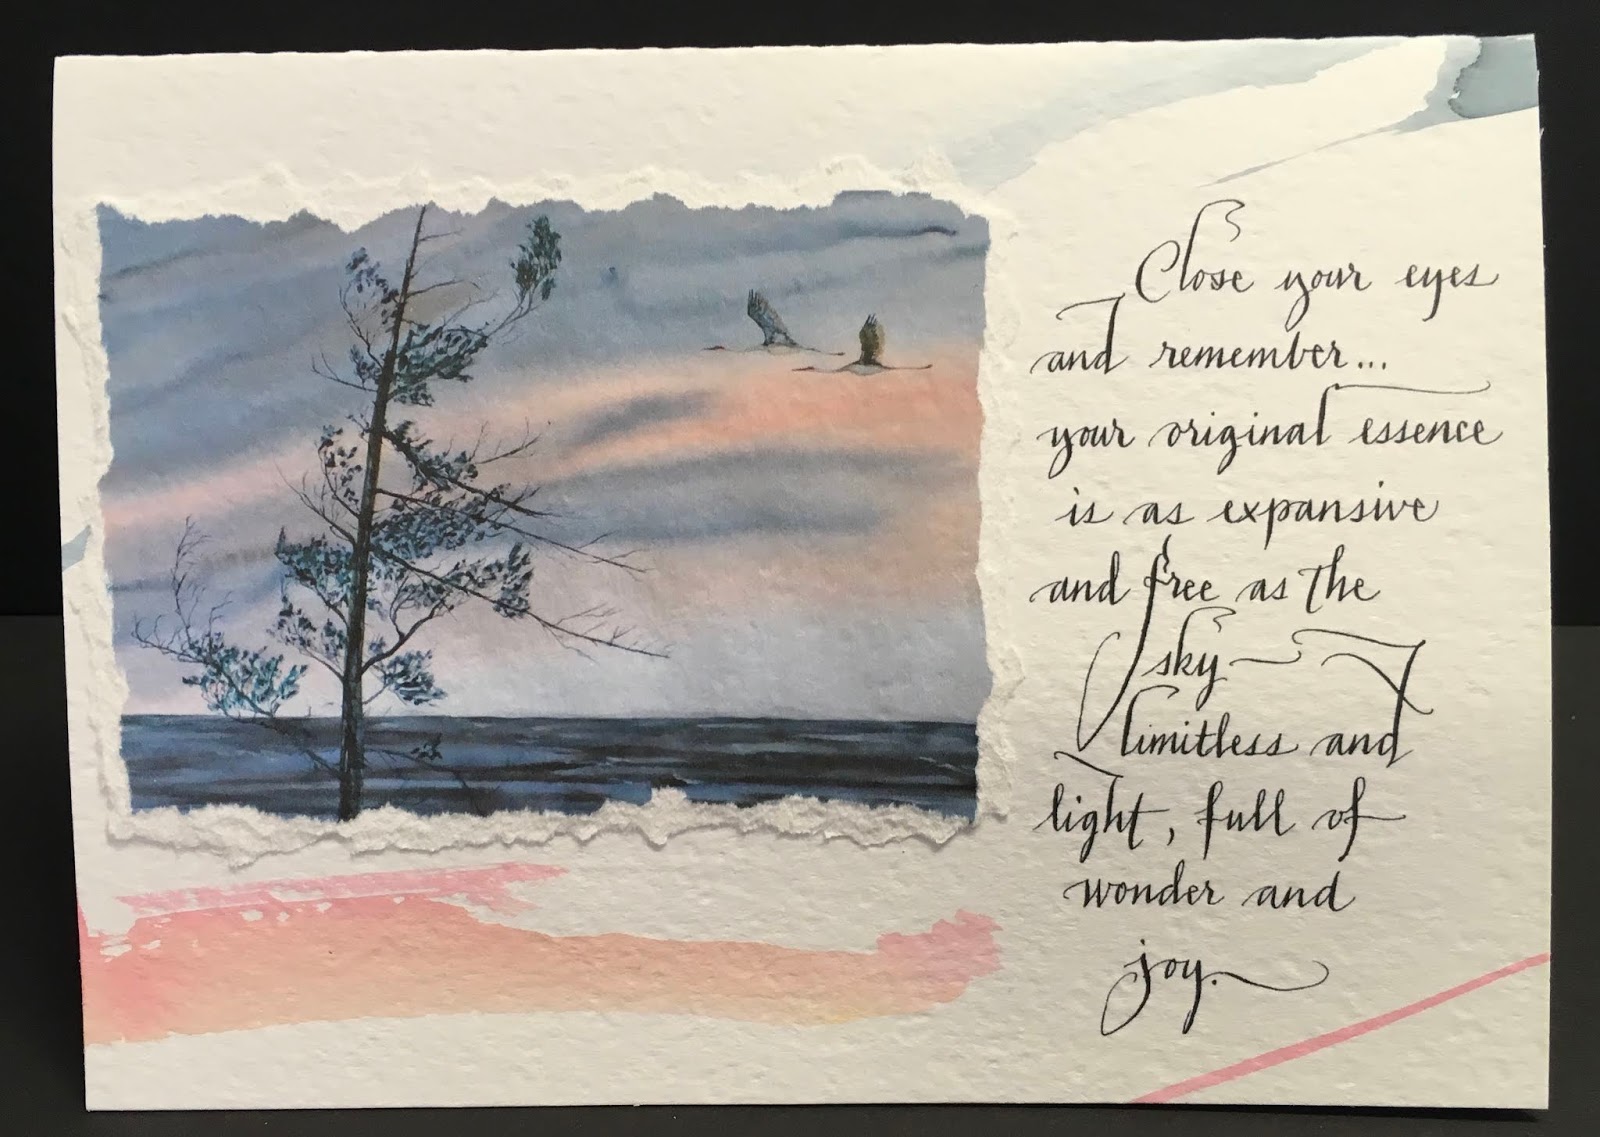 Close your eyes
and remember...
your original essence
is as expansive
and free as the
sky
limitless and
light, full of
wonder and
joy.